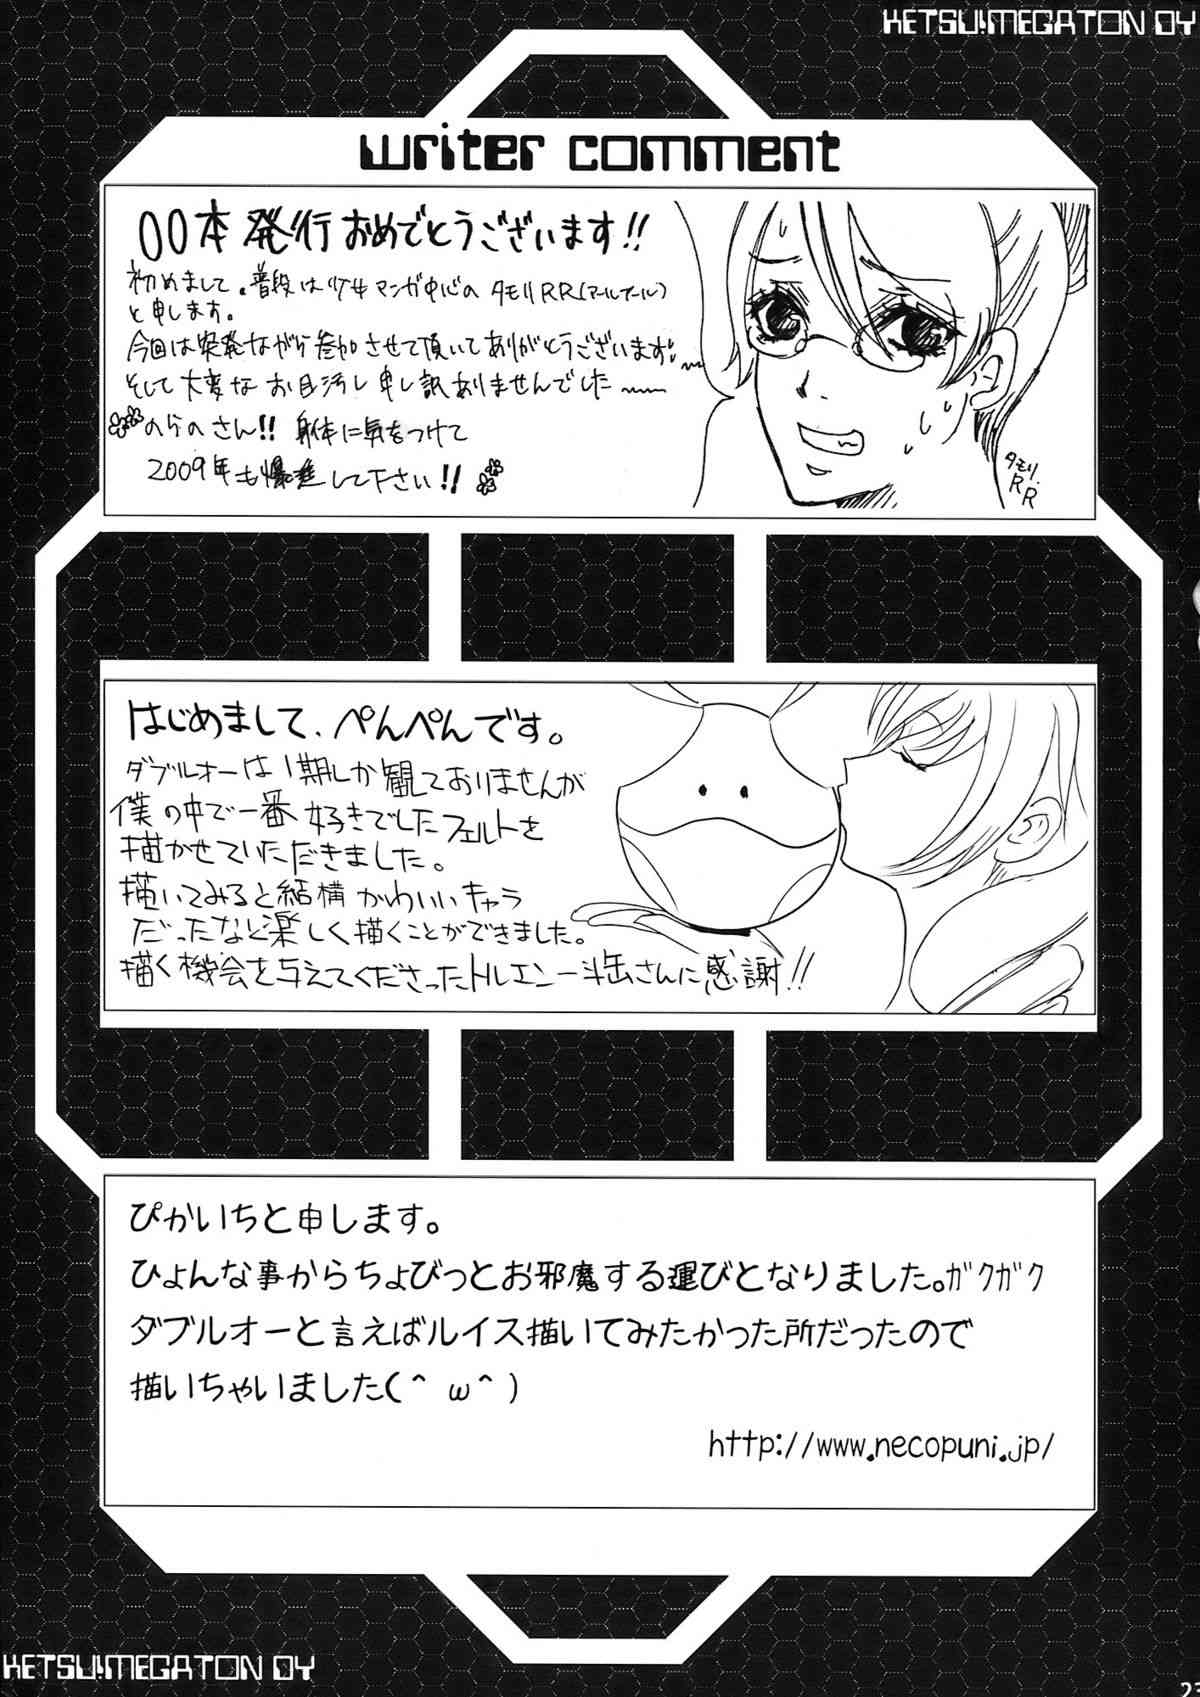 KETSU!MEGATON OY
writer comment
00本発行おめでとうございます!!
初めまして。普段は少女マンガ中心のタモリRR(アールアール)
と申します。
今回は突発ながら参加させて頂いてありがとうございます。
そして大変なお目汚し申し訳ありませんでした〜
のらのさん!! 身体に気をつけて
2009年も爆進して下さい!!
タモリ.
RR
はじめまして、ぺんぺんです。
ダブルオーは1期しか観ておりませんが
僕の中で一番好きでしたフェルトを
描かせていただきました。
描いてみると結構かわいいキャラ
だったなと楽しく描くことができました。
描く機会を与えてくださったトルエン一斗缶さんに感謝!!
ぴかいちと申します。
ひょんな事からちょびっとお邪魔する運びとなりました。ガクガク
ダブルオーと言えばルイス描いてみたかった所だったので
描いちゃいました(^ω^)
http://www.necopuni.jp/
KETSU!MEGATON OY